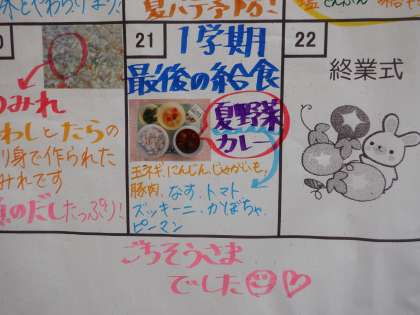 夏バテ予防!
21
1学期
最後の給食
夏野菜
カレー
玉ネギ、にんじん、じゃがいも、
豚肉、なす、トマト
ズッキーニ、かぼちゃ、
ピーマン
22
終業式
つみれ
わしとたらの
り身で作られた
みれです
のだしたっぷり!
ごちそうさま
でした